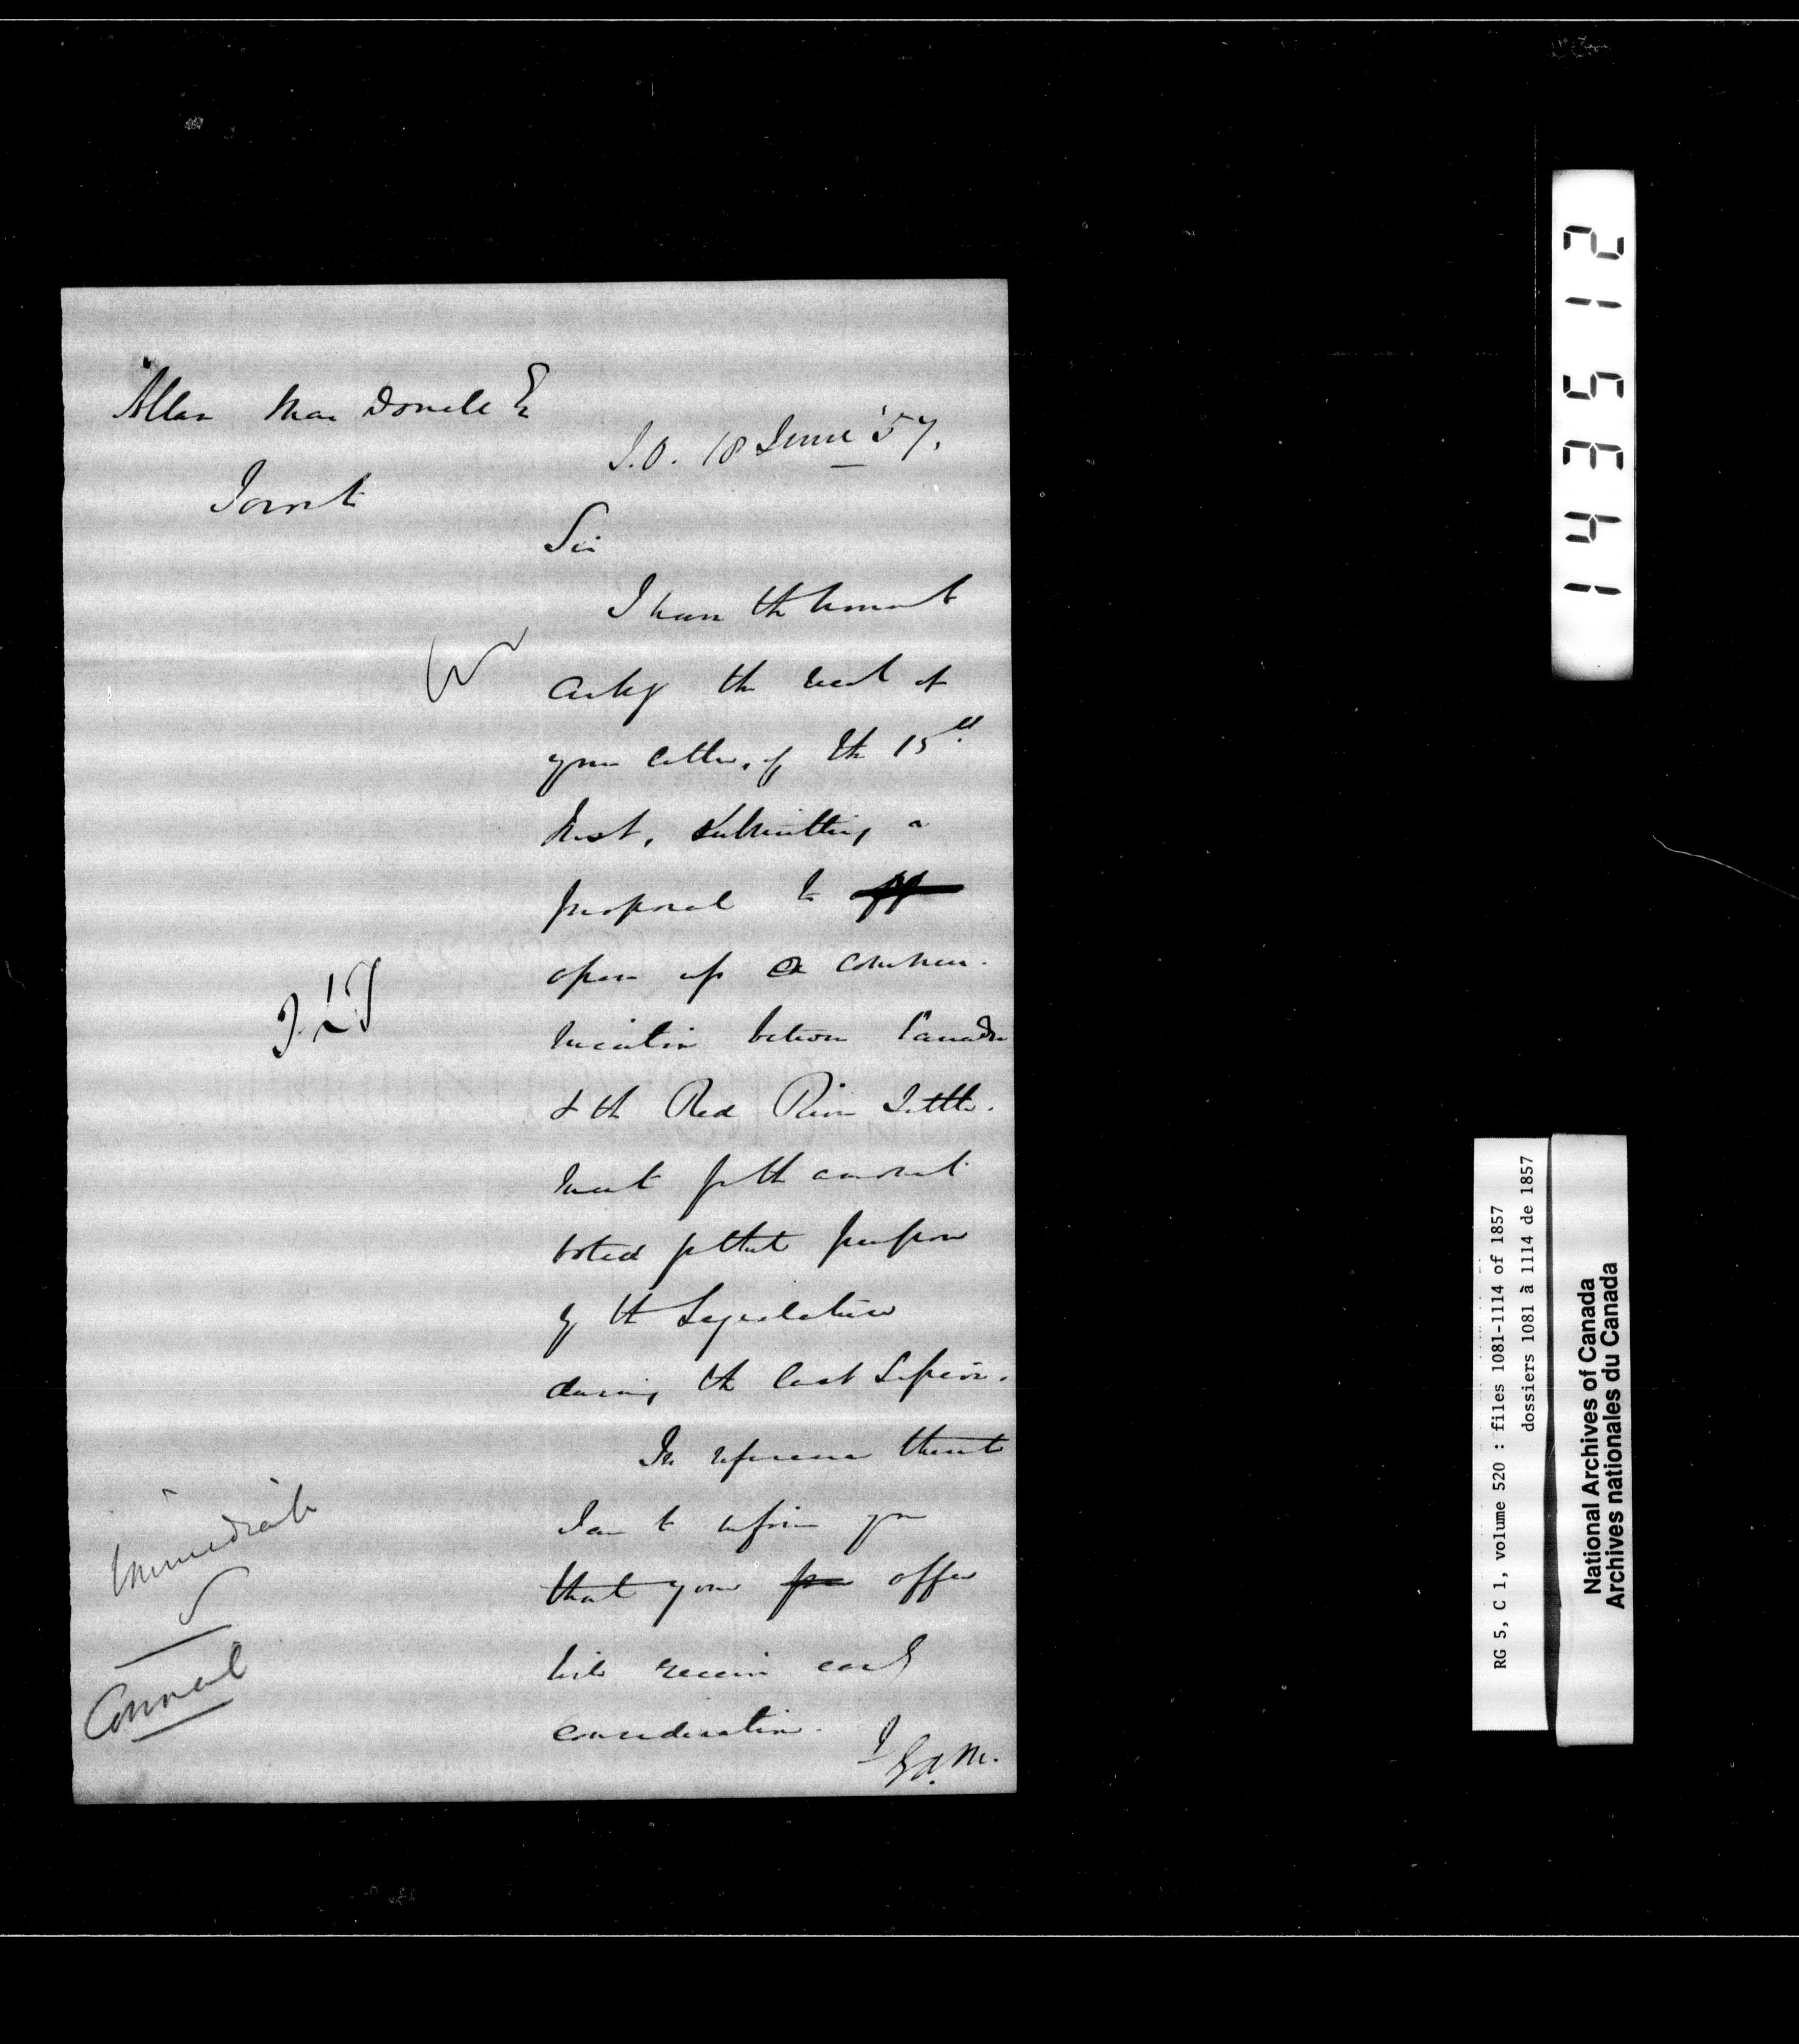 Allan MacDonell Es
Toronto
S.O. 18 June '57.
Sir
I have the honor to
ackg the receipt of
your letter, of the 15th
Inst, submitting a
proposal to
open up a commu-
nication between Canada
& the Red River Settle-
ment for the amount
voted for that purpose
by the Legislature
during the last Session.
In reference thereto
I am to inform you
that your offer
will receive early
consideration.
I
E.A.M.
Immediate
Council
143512
RG 5, C 1, volume 520 : files 1081-1114 of 1857
dossiers 1081 à 1114 de 1857
National Archives of Canada
Archives nationales du Canada